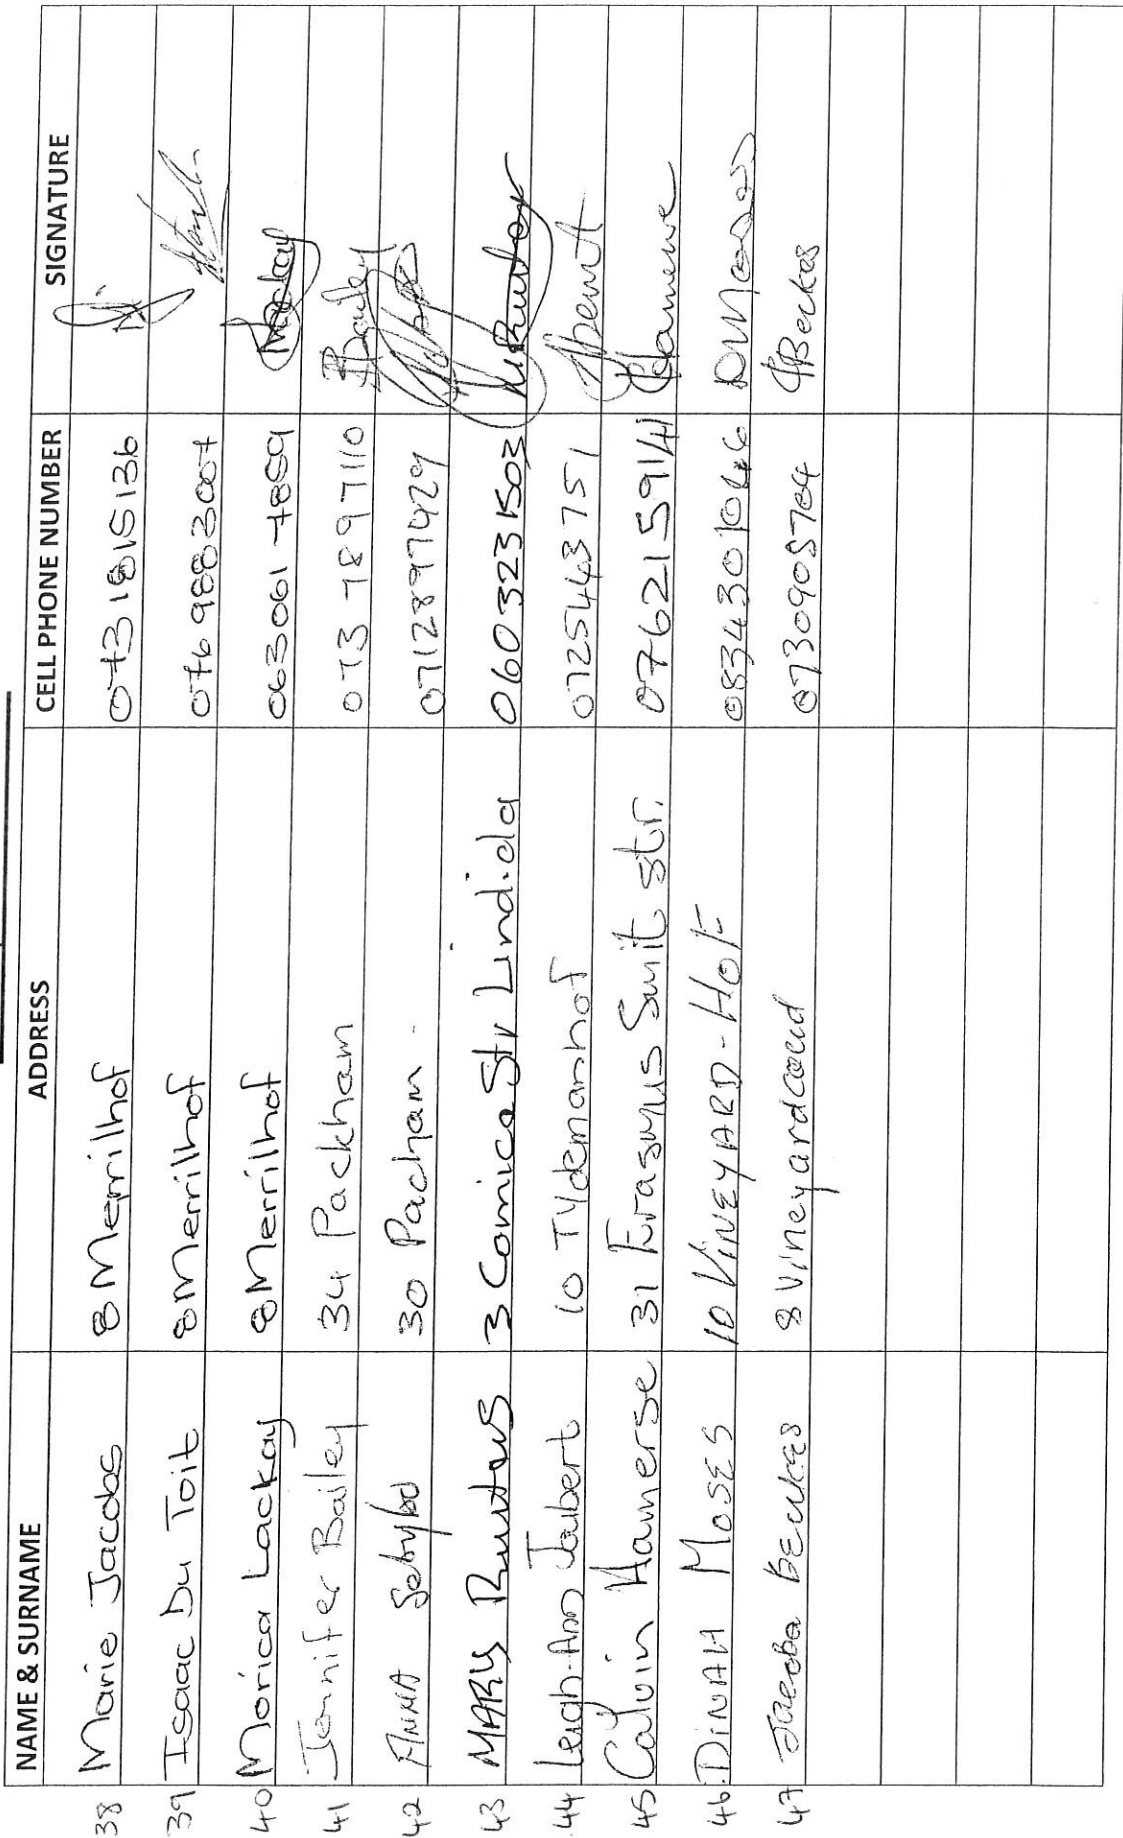 NAME & SURNAME ADDRESS CELL PHONE NUMBER SIGNATURE
38 Marie Jacobs 8 Merrilhof 0731815136
39 Isaac Du Toit 8 Merrilhof 0769883007
40 Morica Lackay 8 Merrilhof 063061 7859 Lackay
41 Jennifer Bailey 34 Packham 073 7897110 JBailey
42 ANNA 30 Pacham 0712897429
43 MARY Ruiters 3 Comica Str Lindida 0603231503 M.Ruiters
44 Leigh-Ann Joubert 10 TYdemanhof 0725443751
45 Calvin Hamerse 31 Erasmus Smit str. 0762159141 CHamerse
46. DINAH MOSES 10 VINEYARD-HOF 0834301046 DMoses
47 Jacoba BEUKES 8 Vineyardcoud 0730905704 JBeukes